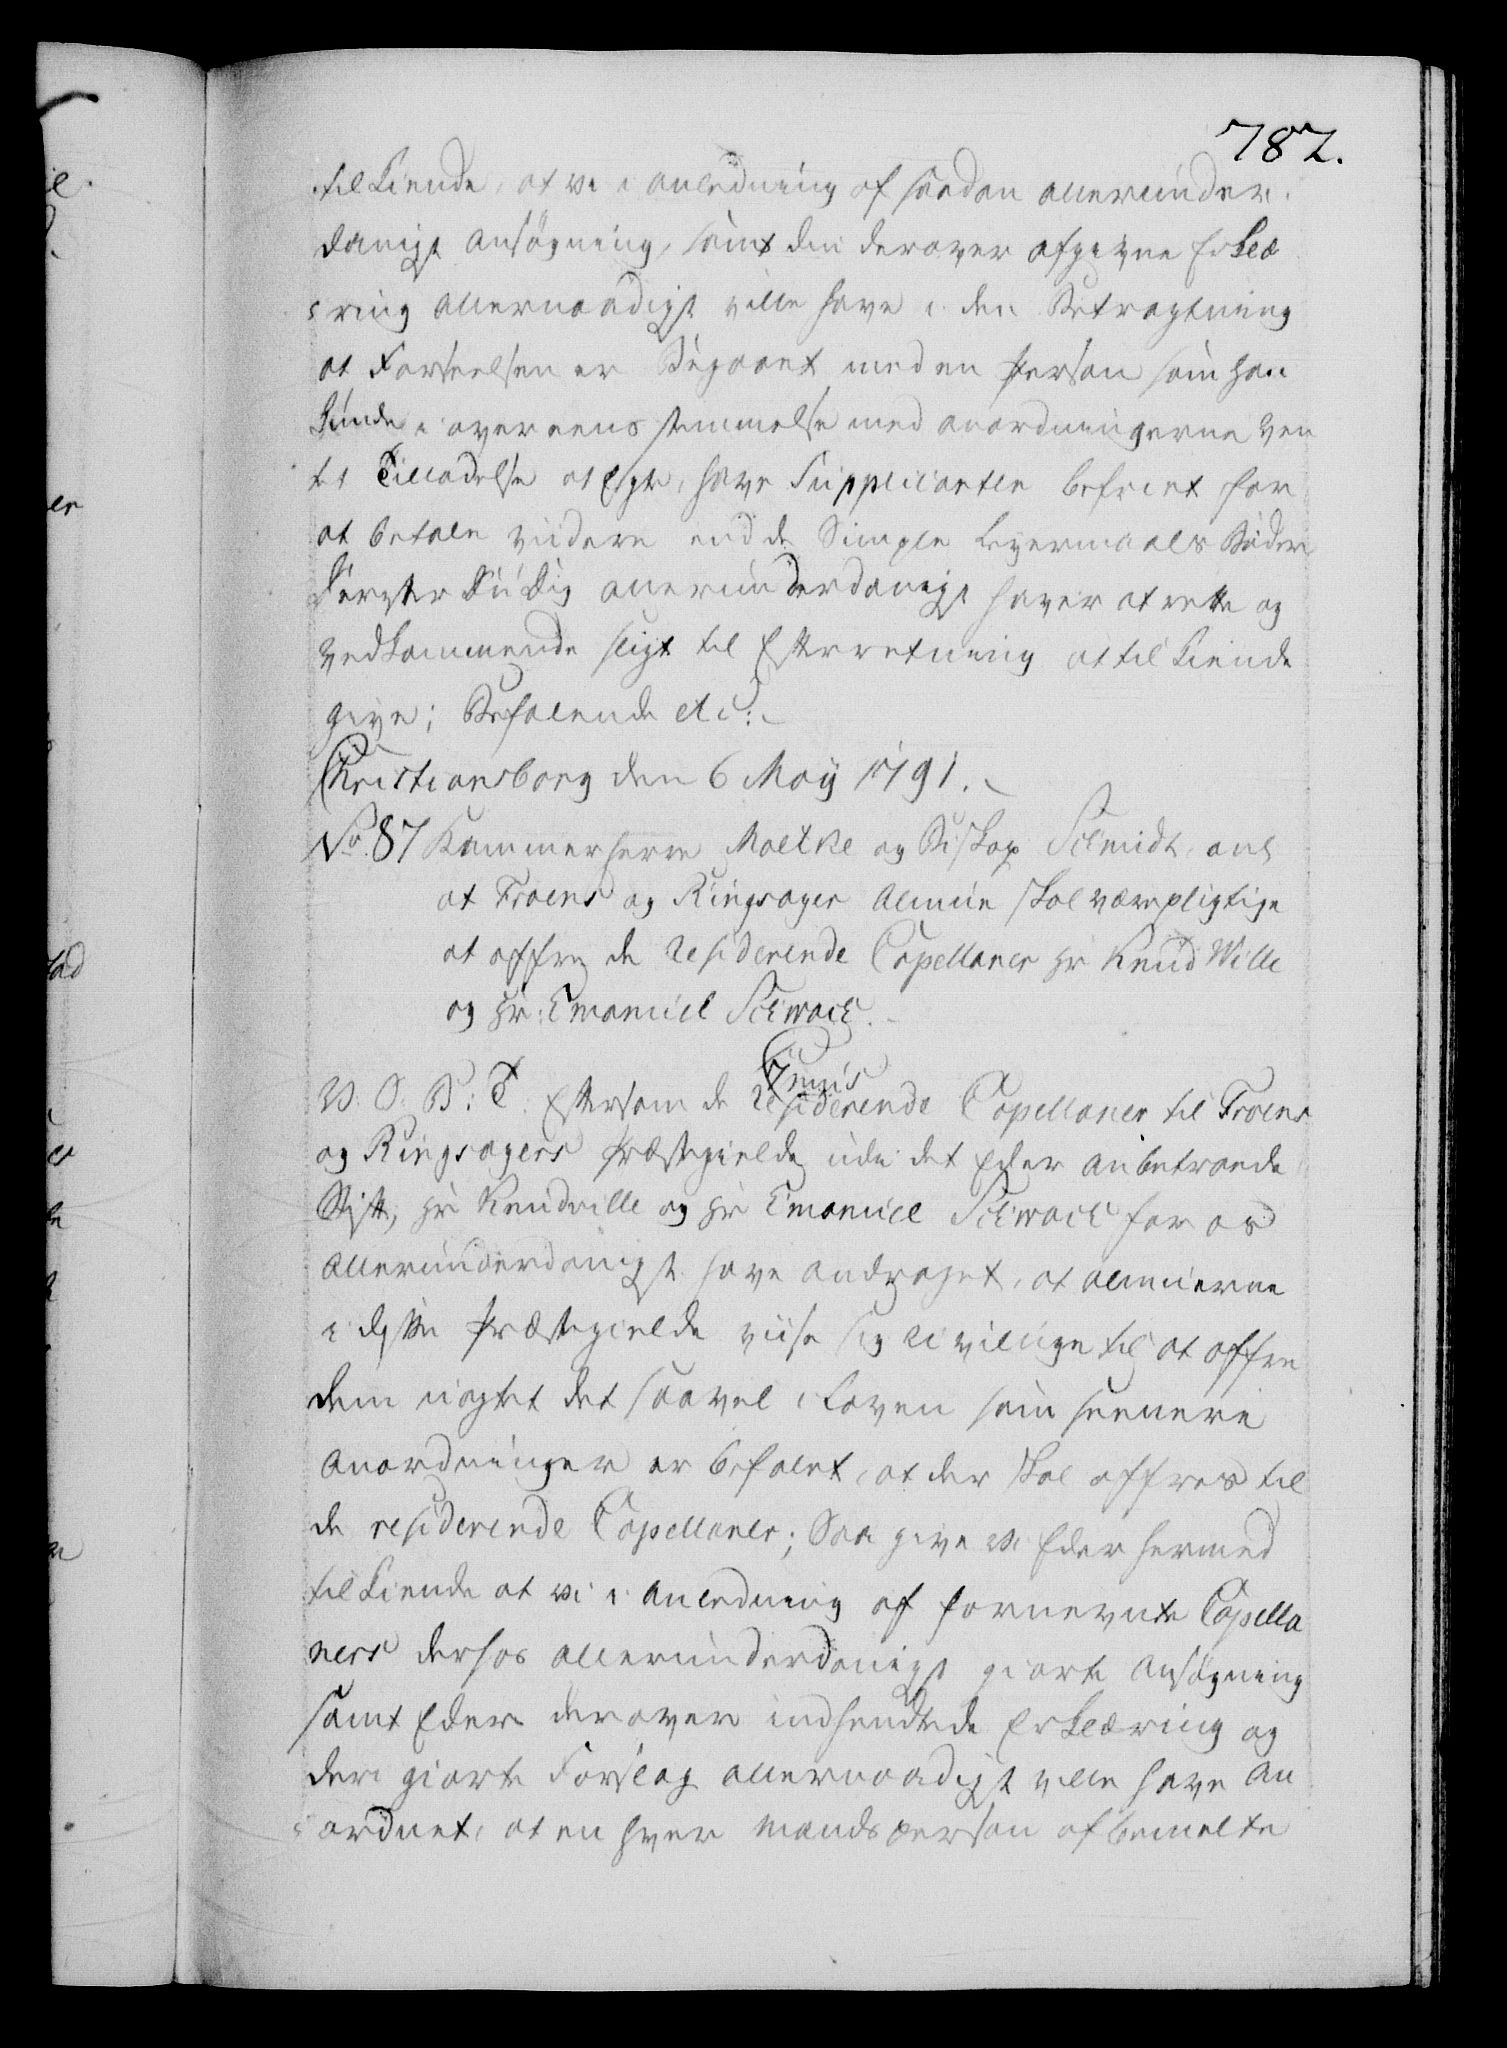 782.
til kiende, at vi i anledning af saadan allerunder-
danigst ansøgning, samt den derover afgivne Erklæ
ring allernaadigst ville have i den Betragtning
at Forseelsen er Begaaet med en Person som han
kunde i overeensstemmelse med anordningerne ven
te Tilladelse at Egte, have Supplicanten befriet for
at betale videre end de Simple Leyermaals Bøder
Hvorefter Du Dig allerunderdanigst haver at rette og
vedkommende sligt til Efterretning at til kiende
give; Befalende etc:
Christiansborg den 6 May 1791.
No. 87 Kammerherre Moltke og Biskop Schmidt, anl
at Froens og Ringsager Almue skal være pligtige
at offre de residerende Capellaner Hr Knud Wille
og Hr: Emanuel Schwach.
7 Junii
V. S. B: T. Eftersom de residerende Capellaner til Froens
og Ringsagers Præstegielde udi det Eder anbetroede
Stift, Hr Knud Wille og Hr Emanuel Schwach for os
allerunderdanigst have andraget, at almuerne
i disse Præstegielde viise sig uvillige til at offre
dem uagtet det saavel i Loven som seenere
Anordninger er befalet, at der skal offres til
de residerende Capellaner; Saa give vi Eder hermed
til kiende at vi i Anledning af fornevnte Capella
ners derhos allerunderdanigst giorte Ansøgning
samt Eders derover indsendte Erklæring og
deri giorte Forslag allernaadigst ville have An
ordnet, at en hver Mandsperson af bemelte